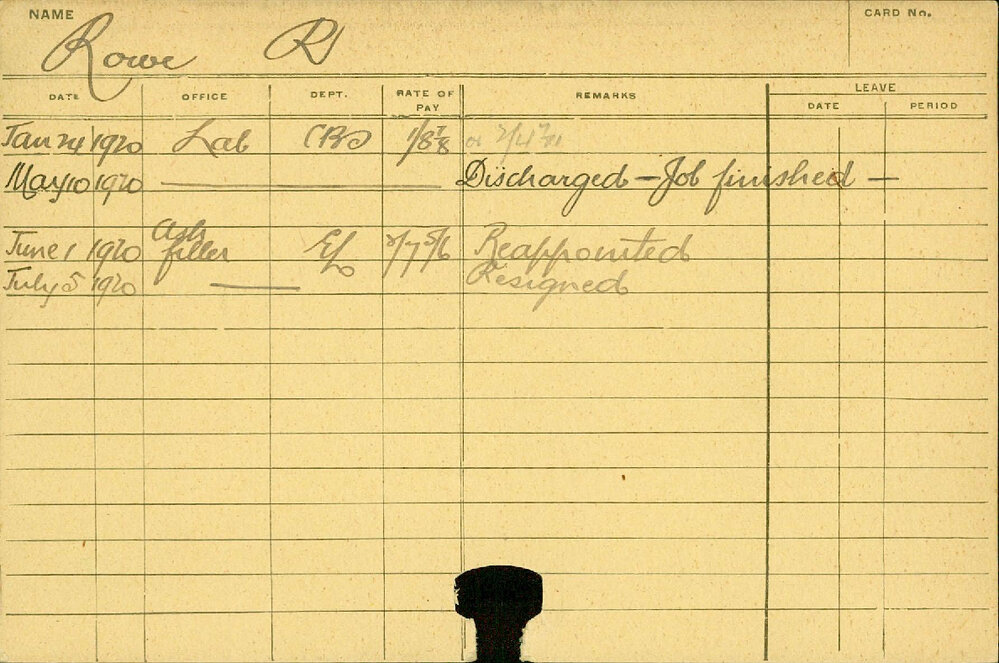 NAME
CARD No.
Rowe R
DATE OFFICE DEPT. RATE OF PAY REMARKS LEAVE
DATE PERIOD
Jan 24 1920 Lab 1/8 7/8
May 10 1920 — Discharged – Job finished —
June 1 1920 Ash filler Reappointed
July 5 1920 — Resigned